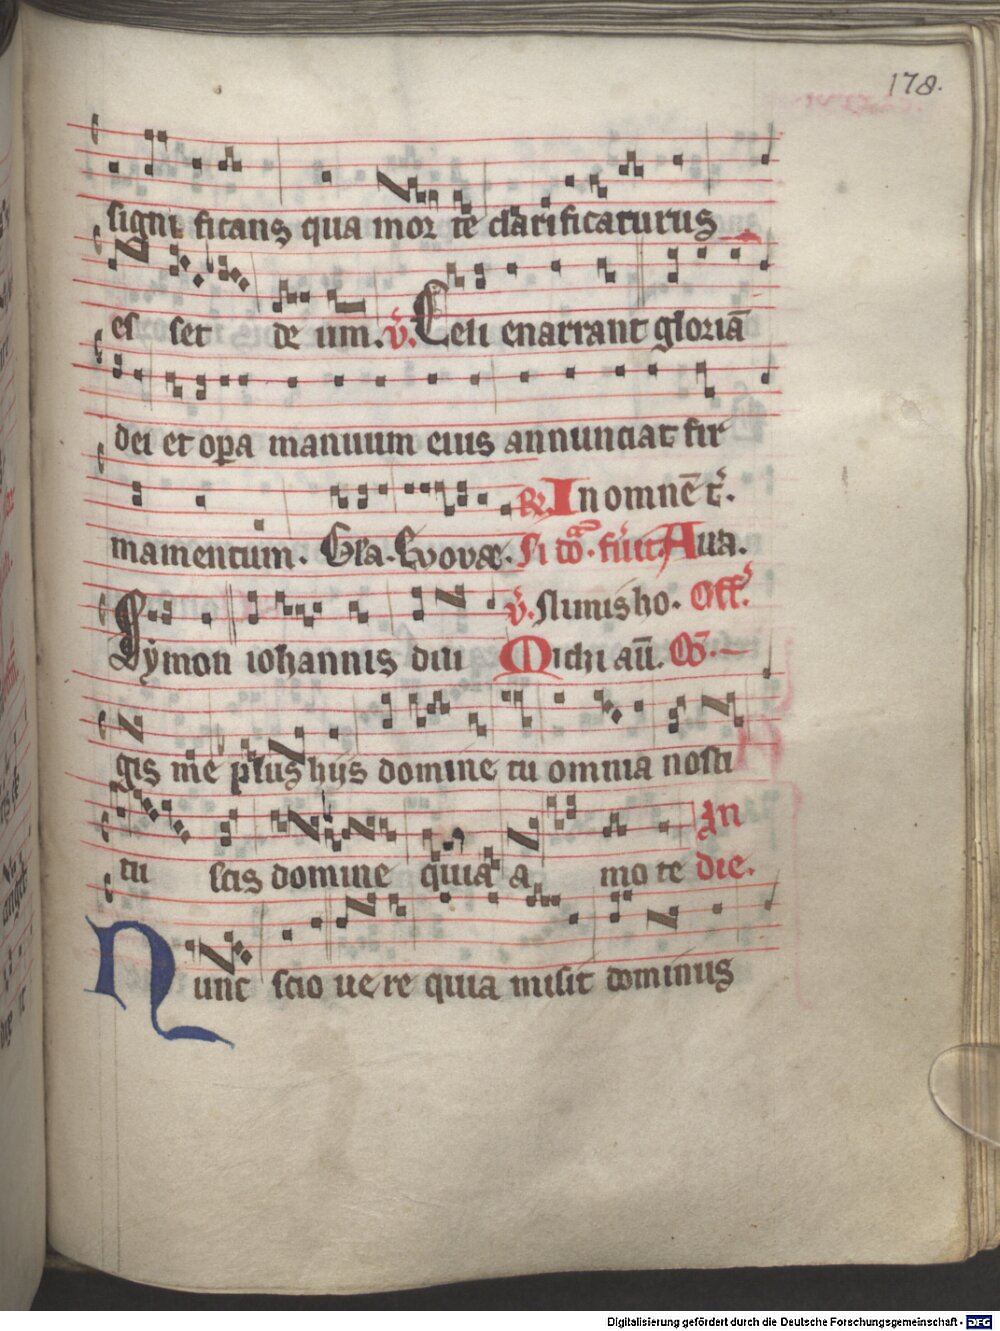 178.
signi ficans qua mor te clarificaturus
es set de um. V̄. Celi enarrant gloriā
dei et op̄a manuum eius annunciat fir
mamentum. Gla. Evovae. In omnē t̄.
Aua.
nimis ho. Off.
Sẏmon iohannis dili Michi aū. Co.
gis me plus hijs domine tu omnia nosti
tu scis domine quia a mo te die.
In
Nunc scio ue re quia misit dominus
Digitalisierung gefördert durch die Deutsche Forschungsgemeinschaft - DFG